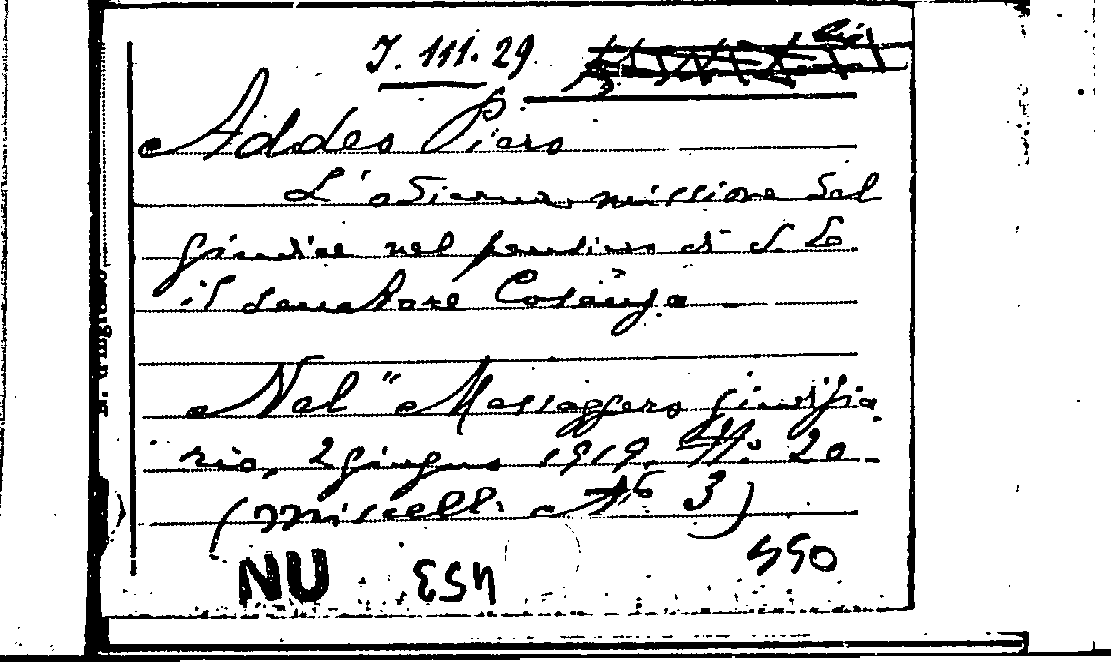 J. 111. 29
Addeo Piero
L'odierna missione del
giudice nel pensiero di S. E.
il senatore Cosenza
Nel "Messaggero giudizia
rio, 2 giugno 1919. N.o 20
(Miscell. A N.o 3)
NU 550